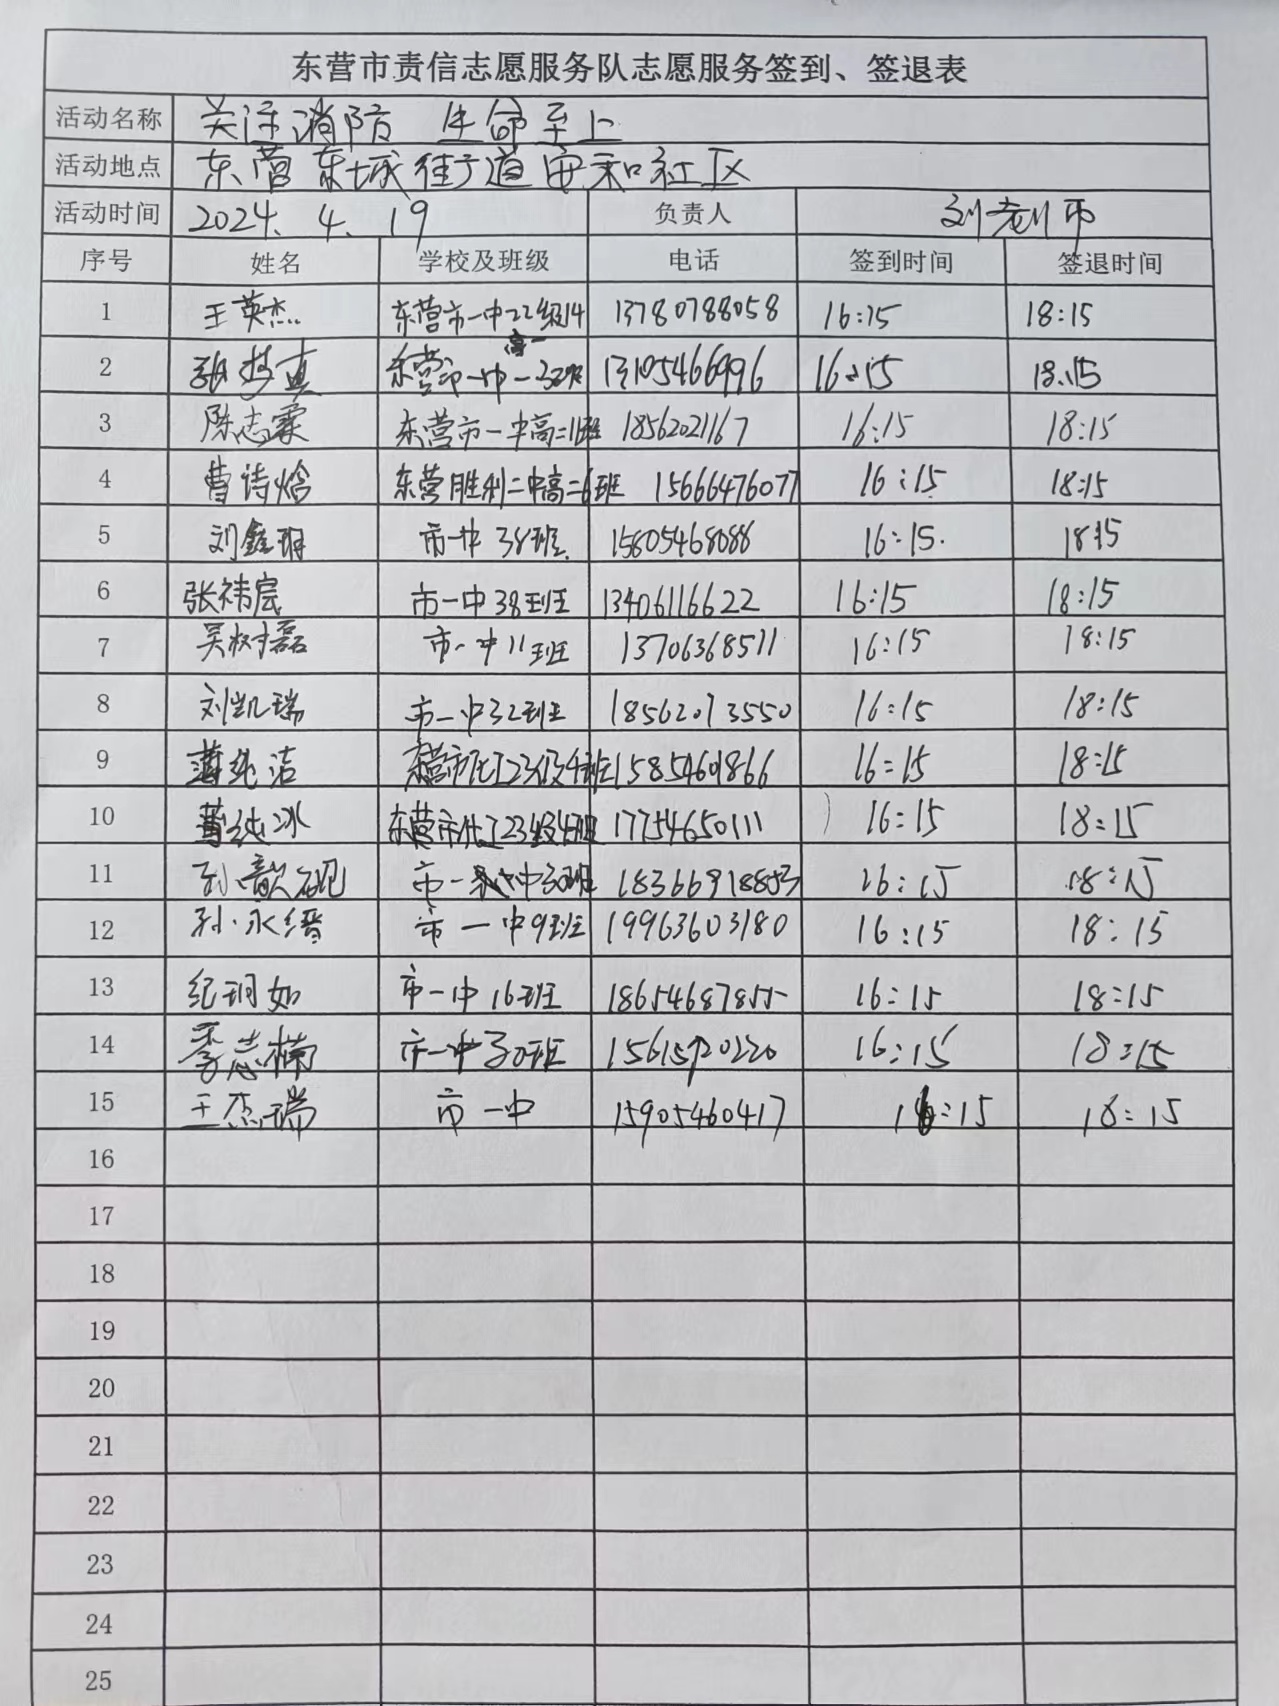 东营市责信志愿服务队志愿服务签到、签退表
活动名称 关注消防 生命至上
活动地点 东营东城街道安和社区
活动时间 2024.4.19 负责人 刘老师
序号 姓名 学校及班级 电话 签到时间 签退时间
1 王英杰 东营市一中22级14 13780788058 16:15 18:15
高一
2 张梦真 东营市一中一32班 13105466996 16:15 18:15
3 陈志霖 东营市一中高二11班 18562021167 16:15 18:15
4 曹诗焓 东营胜利二中高二6班 15666476077 16:15 18:15
5 刘鑫 市一中 38班 15805468088 16:15. 18:15
6 张祎宸 市一中38班 13406116622 16:15 18:15
7 吴树磊 市一中11班 13706368511 16:15 18:15
8 刘凯瑞 市一中32班 18562073550 16:15 18:15
9 纯洁 东营市化工23级4班 15854601866 16:15 18:15
10 纯冰 东营市化工23级4班 17754650111 16:15 18:15
11 孙歆砚 市一中30班 16:15 18:15
12 孙永缙 市一中9班 19963603180 16:15 18:15
13 纪玥如 市一中16班 18654687855 16:15 18:15
14 李志楠 市一中30班 15615720220 16:15 18:15
15 王杰瑞 市一中 15905460417 16:15 18:15
16
17
18
19
20
21
22
23
24
25